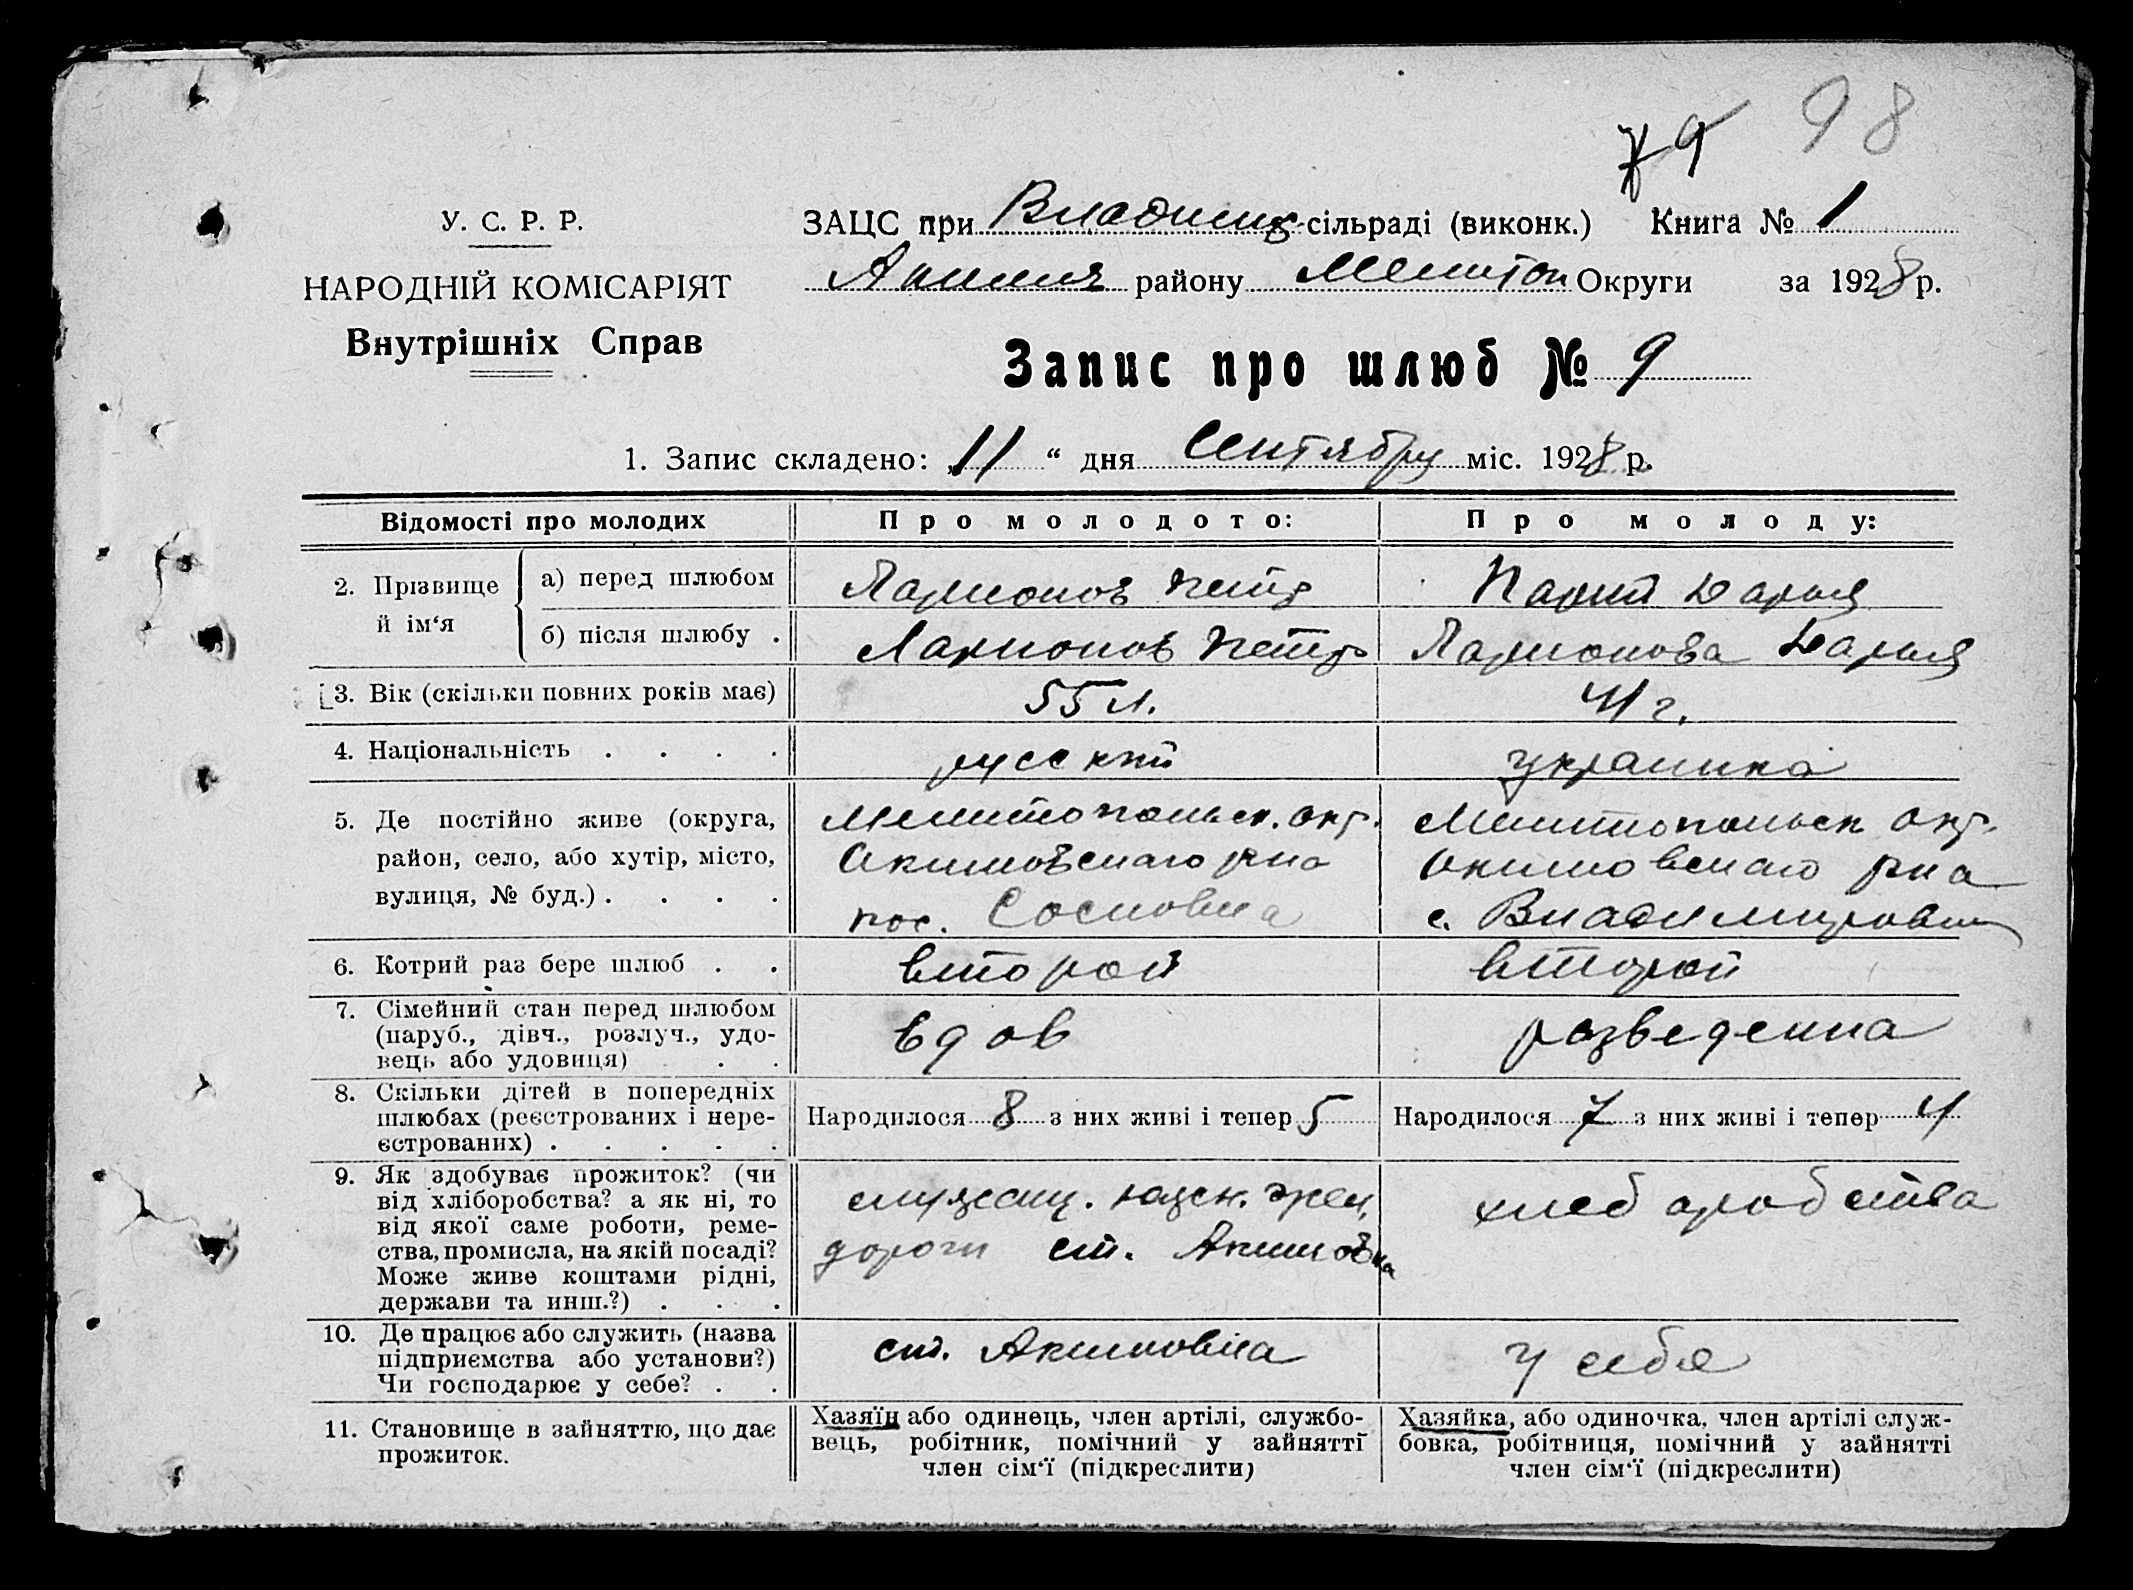 79 98
У. С. Р. Р.
НАРОДНІЙ КОМІСАРІЯТ
Внутрішніх Справ
ЗАЦС при Владимир сільраді (виконк.) Книга № 1
Акимов району Мелитоп Округи за 1928 р.
Запис про шлюб № 9
1. Запис складено: „11“ дня Сентября міс. 1928 р.
Відомості про молодих
Про молодого:
Про молоду:
2. Прізвище й ім‘я
а) перед шлюбом
Ларионов Петр
Дарья
б) після шлюбу .
Ларионов Петр
Ларионова Дарья
3. Вік (скільки повних років має)
55 л.
41 г.
4. Національність . . . .
русский
украинка
5. Де постійно живе (округа,
район, село, або хутір, місто,
вулиця, № буд.) . . . .
Мелитопольск. окр.
Акимовскаго р-на
пос. Сосновка
Мелитопольск окр.
Акимовскаго р-на
с. Владимировка
6. Котрий раз бере шлюб . .
второй
второй
7. Сімейний стан перед шлюбом
(паруб., дівч., розлуч., удо-
вець або удовиця) . .
вдов
разведенна
8. Скільки дітей в попередніх
шлюбах (реєстрованих і нере-
єстрованих) . . . . .
Народилося 8 з них живі і тепер 5
Народилося 7 з них живі і тепер 4
9. Як здобуває прожиток? (чи
від хліборобства? а як ні, то
від якої саме роботи, реме-
ства, промисла, на якій посаді?
Може живе коштами рідні,
держави та инш.?) . . .
служащ. южн. жел.
дороги ст. Акимовка
хлеборобства
10. Де працює або служить (назва
підприємства або установи?)
Чи господарює у себе? . .
ст. Акимовка
У себя
11. Становище в зайняттю, що дає
прожиток.
Хазяїн або одинець, член артілі, службо-
вець, робітник, помічний у зайнятті
член сім‘ї (підкреслити)
Хазяйка, або одиночка, член артілі служ-
бовка, робітниця, помічний у зайнятті
член сім‘ї (підкреслити)